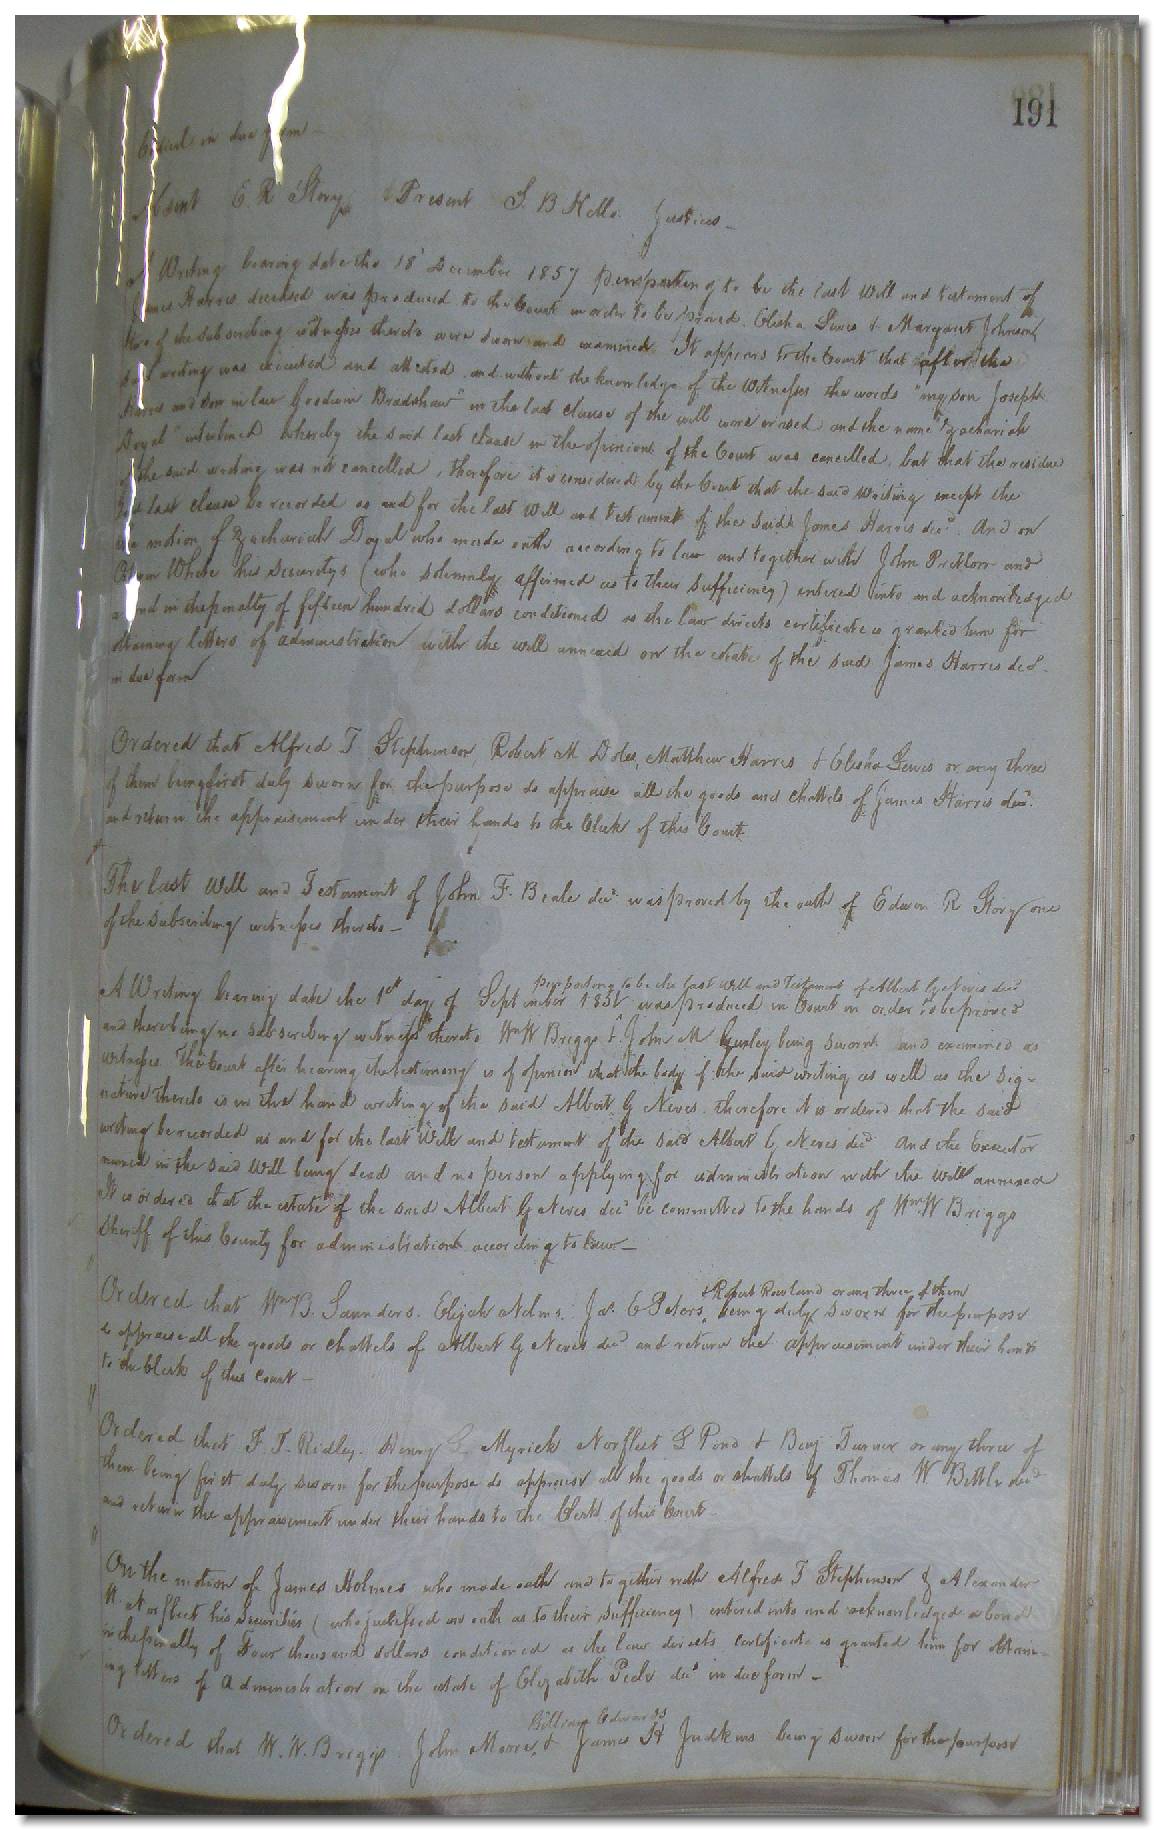 191
in due form
Absent E. R Story Present S. B Kello Justices
A Writing bearing date the 18 December 1857 purporting to be the last Will and testament of
James Harris deceased was produced to the Court in order to be proved. Elisha Lewis & Margaret Johnson
two of the subscribing witnesses thereto were sworn and examined. It appears to the Court that after the
said writing was executed and attested and without the knowledge of the Witnesses the words "my son Joseph
Harris and son in law Goodwin Bradshaw" in the last clause of the will were erased and the name "Zachariah
Doyal" interlined whereby the said last clause in the opinion of the Court was cancelled, but that the residue
of the said writing was not cancelled, therefore it is considered by the Court that the said writing except the
said last clause be recorded as and for the last Will and testament of the said James Harris decd. And on
the motion of Zachariah Doyal who made oath according to law and together with John and
White his securitys (who solemnly affirmed as to their sufficiency) entered into and acknowledged
a bond in the penalty of fifteen hundred dollars conditioned as the law directs certificate is granted him for
obtaining letters of administration with the will annexed on the estate of the said James Harris decd.
in due form
Ordered that Alfred T Stephenson, Robert M Doles, Matthew Harris & Elisha Lewis or any three
of them being first duly sworn for the purpose do appraise all the goods and chattels of James Harris decd.
and return the appraisement under their hands to the Clerk of this Court
The last Will and Testament of John F. Beale decd was proved by the oath of Edwin R Story one
of the subscribing witnesses thereto —
purporting to be the last Will and Testament of Albert G Neves decd
A Writing bearing date the 1st day of September 1851 was produced in Court in order to be proved
and there being no subscribing witness thereto Wm W Briggs & John M Gurley being sworn and examined as
witnesses. The Court after hearing the testimony is of opinion that the body of the said writing as well as the sig-
nature thereto is in the hand writing of the said Albert G Neves. therefore it is ordered that the said
writing be recorded as and for the last Will and testament of the said Albert G Neves decd And the Executor
named in the said Will being dead and no person applying for administration with the Will annexed
It is ordered that the estate of the said Albert G Neves decd be committed to the hands of Wm W Briggs
Sheriff of this County for administration according to law —
& Robert Rowland or any three of them
Ordered that Wm B. Saunders. Elijah Nelms. Jas. E Peters, being duly sworn for the purpose
do appraise all the goods or chattels of Albert G Neves decd and return the appraisement under their hands
to the Clerk of this Court —
Ordered that F. T. Ridley. Henry Myrick Norfleet L Pond & Benj Turner or any three of
them being first duly sworn for the purpose do appraise all the goods or chattels of Thomas W Bittle decd
and return the appraisement under their hands to the Clerk of this Court
On the motion of James Holmes who made oath and together with Alfred T Stephenson & Alexander
W. Norfleet his securities (who justified on oath as to their sufficiency) entered into and acknowledged a bond
in the penalty of Four thousand dollars conditioned as the law directs certificate is granted him for obtain-
ing letters of Administration on the estate of Elizabeth Peele decd in due form —
William Edwards
Ordered that W. W. Briggs. John Moore, & James H Judkins being sworn for the purpose